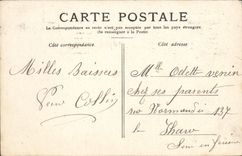 CARTE POSTALE
La Correspondance au recto n'est pas acceptée par tous les pays étrangers
(Se renseigner à la Poste)
Côté correspondance.
Côté adresse.
Milles Baisers
Mlle Odett
chez ses parents
rue Normandie 137
le Havre